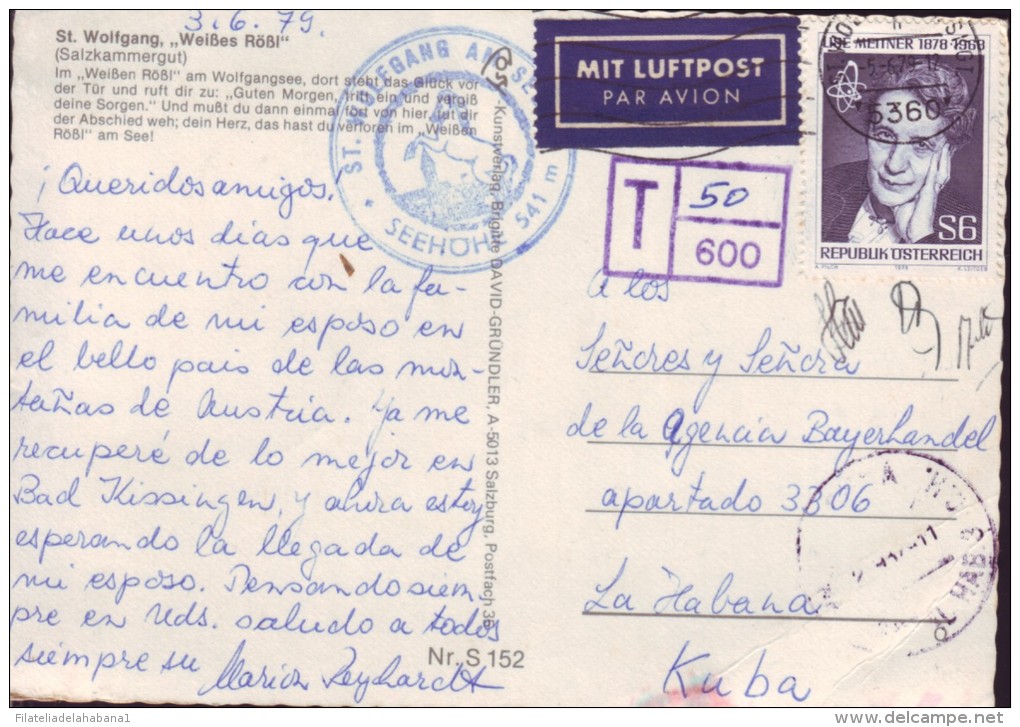 3.6.79.
St. Wolfgang, „Weißes Rößl"
(Salzkammergut)
Im „Weißen Rößl" am Wolfgangsee, dort steht das Glück vor
der Tür und ruft dir zu: „Guten Morgen, tritt ein und vergiß
deine Sorgen." Und mußt du dann einmal fort von hier, tut dir
der Abschied weh; dein Herz, das hast du verloren im „Weißen
Rößl" am See!
¡Queridos amigos!
Hace unos días que
me encuentro con la fa-
milia de mi esposo en
el bello pais de las mon-
tañas de Austria. Ya me
recuperé de lo mejor en
Bad Kissingen, y ahora estoy
esperando la llegada de
mi esposo. Pensando siem-
pre en Uds. saludo a todos
siempre su
ST. WOLFGANG AM SEE
* SEEHÖHE 541 m
Kunstverlag, Brigitte DAVID-GRÜNDLER, A-5013 Salzburg, Postfach 36
Nr. S 152
MIT LUFTPOST
PAR AVION
T
50
600
LISE MEITNER 1878-1968
5360
S6
REPUBLIK ÖSTERREICH
A los
Señores y Señora
de la Agencia Bayerhandel
apartado 3306
La Habana
Kuba
Filateliadelahabana1
delcampe.net